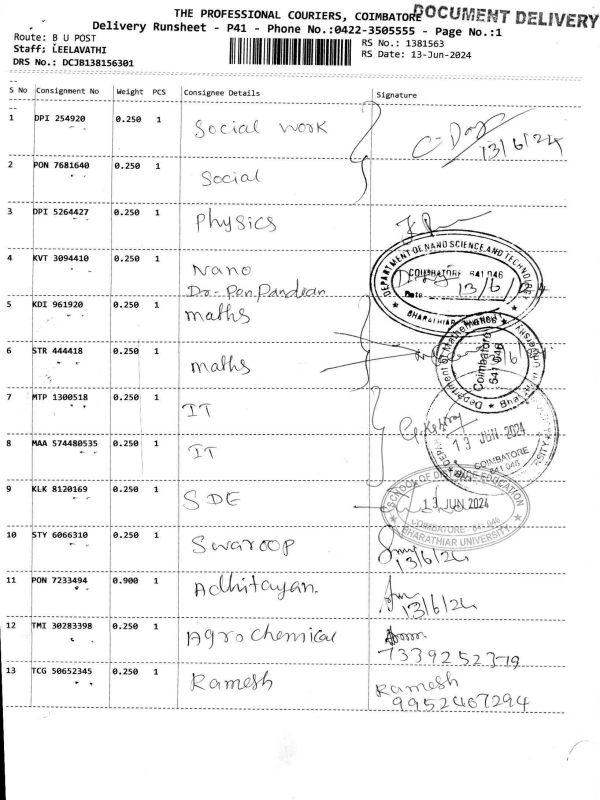 THE PROFESSIONAL COURIERS, COIMBATORE
DOCUMENT DELIVERY
Delivery Runsheet - P41 - Phone No.:0422-3505555 - Page No.:1
Route: B U POST
Staff: LEELAVATHI
DRS No.: DCJB138156301
RS No.: 1381563
RS Date: 13-Jun-2024
S No Consignment No Weight PCS Consignee Details Signature
1 DPI 254920 0.250 1 Social work
13/6/24
2 PON 7681640 0.250 1 Social
3 DPI 5264427 0.250 1 Physics
4 KVT 3094410 0.250 1 Nano
Dr. Pon Pandian
DEPARTMENT OF NANO SCIENCE AND TECHNOLOGY
COIMBATORE 641 046
Date 13/6/24
BHARATHIAR
5 KDI 961920 0.250 1 maths
6 STR 444418 0.250 1 maths
Department of Mathematics
Coimbatore
641 046
7 MTP 1300518 0.250 1 IT
8 MAA 574480535 0.250 1 IT
13 JUN 2024
COIMBATORE
641 046
9 KLK 8120169 0.250 1 SDE
SCHOOL OF DISTANCE EDUCATION
13 JUN 2024
COIMBATORE - 641 046
BHARATHIAR UNIVERSITY
10 STY 6066310 0.250 1 Swaroop
13/6/24
11 PON 7233494 0.900 1 Adhitayan.
13/6/24
12 TMI 30283398 0.250 1 Agro Chemical
7339252379
13 TCG 50652345 0.250 1 Ramesh
Ramesh
9952467294